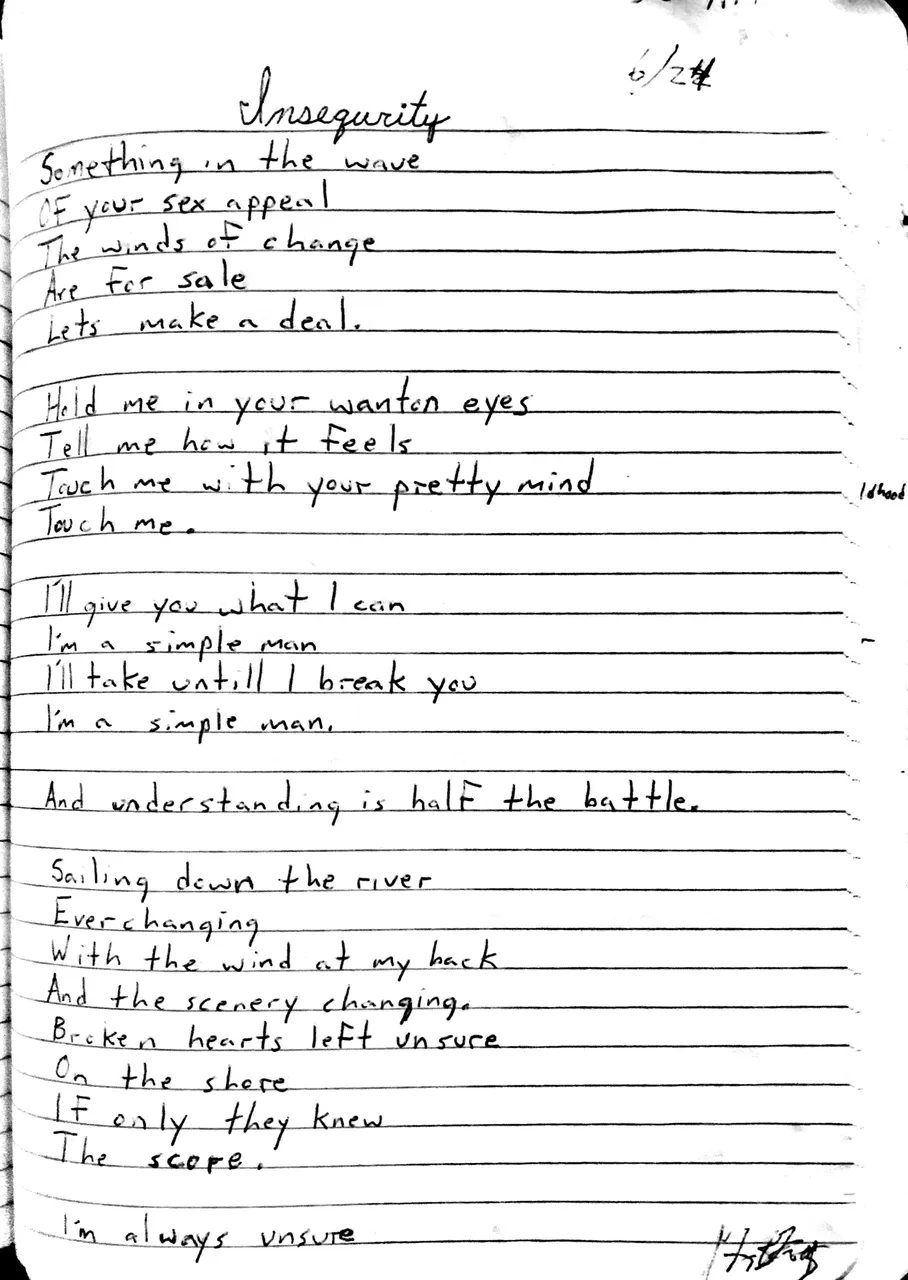 6/24
Insequrity
Something in the wave
Of your sex appeal
The winds of change
Are for sale
Lets make a deal.
Hold me in your wanton eyes
Tell me how it feels
Touch me with your pretty mind
Touch me.
I'll give you what I can
I'm a simple man
I'll take untill I break you
I'm a simple man.
And understanding is half the battle.
Sailing down the river
Everchanging
With the wind at my back
And the scenery changing.
Broken hearts left unsure
On the shore
If only they knew
The score.
I'm always unsure